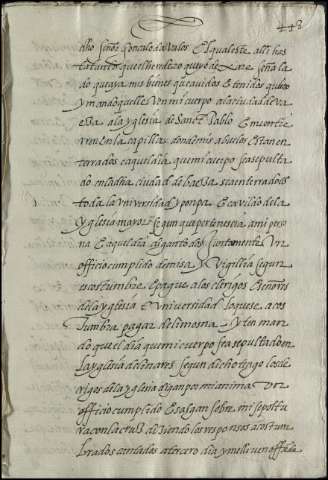 448
dho señor gonçalo dabalos El qual este alli has
tatanto que el hendezo que yo de xare seña la
do que aya mis bienes que avidos E tenidos quiero
y mando que lleven mi cuerpo a la ciudad de va
eça a la yglesia de San Pablo E me entie
rren En la capilla donde mis abuelos Estan en
terrados E aquel dia que mi cuerpo sea sepulta
do en la dha ciudad de baeça sea enterrado
toda la Universidad y pompa E servicio de la
yglesia mayor segun que pertenesçe a mi perso
na E aquel dia digan todos juntamente Un
officio cumplido de misa y Vigilia segun
es costumbre E pague a los clerigos E señores
de la yglesia E Universidad lo que se a cos
tumbra pagar de limosna y ten man
do que el dia que mi cuerpo sea sepultado en
la yglesia de señores segun dicho tengo los cle
rigos de la yglesia digan por mi anima Un
officio cumplido E salgan sobre mi sepoltu
ra con la cruz diziendo los responsos acostum
brados cantados a tercero dia y me lleven offrenda